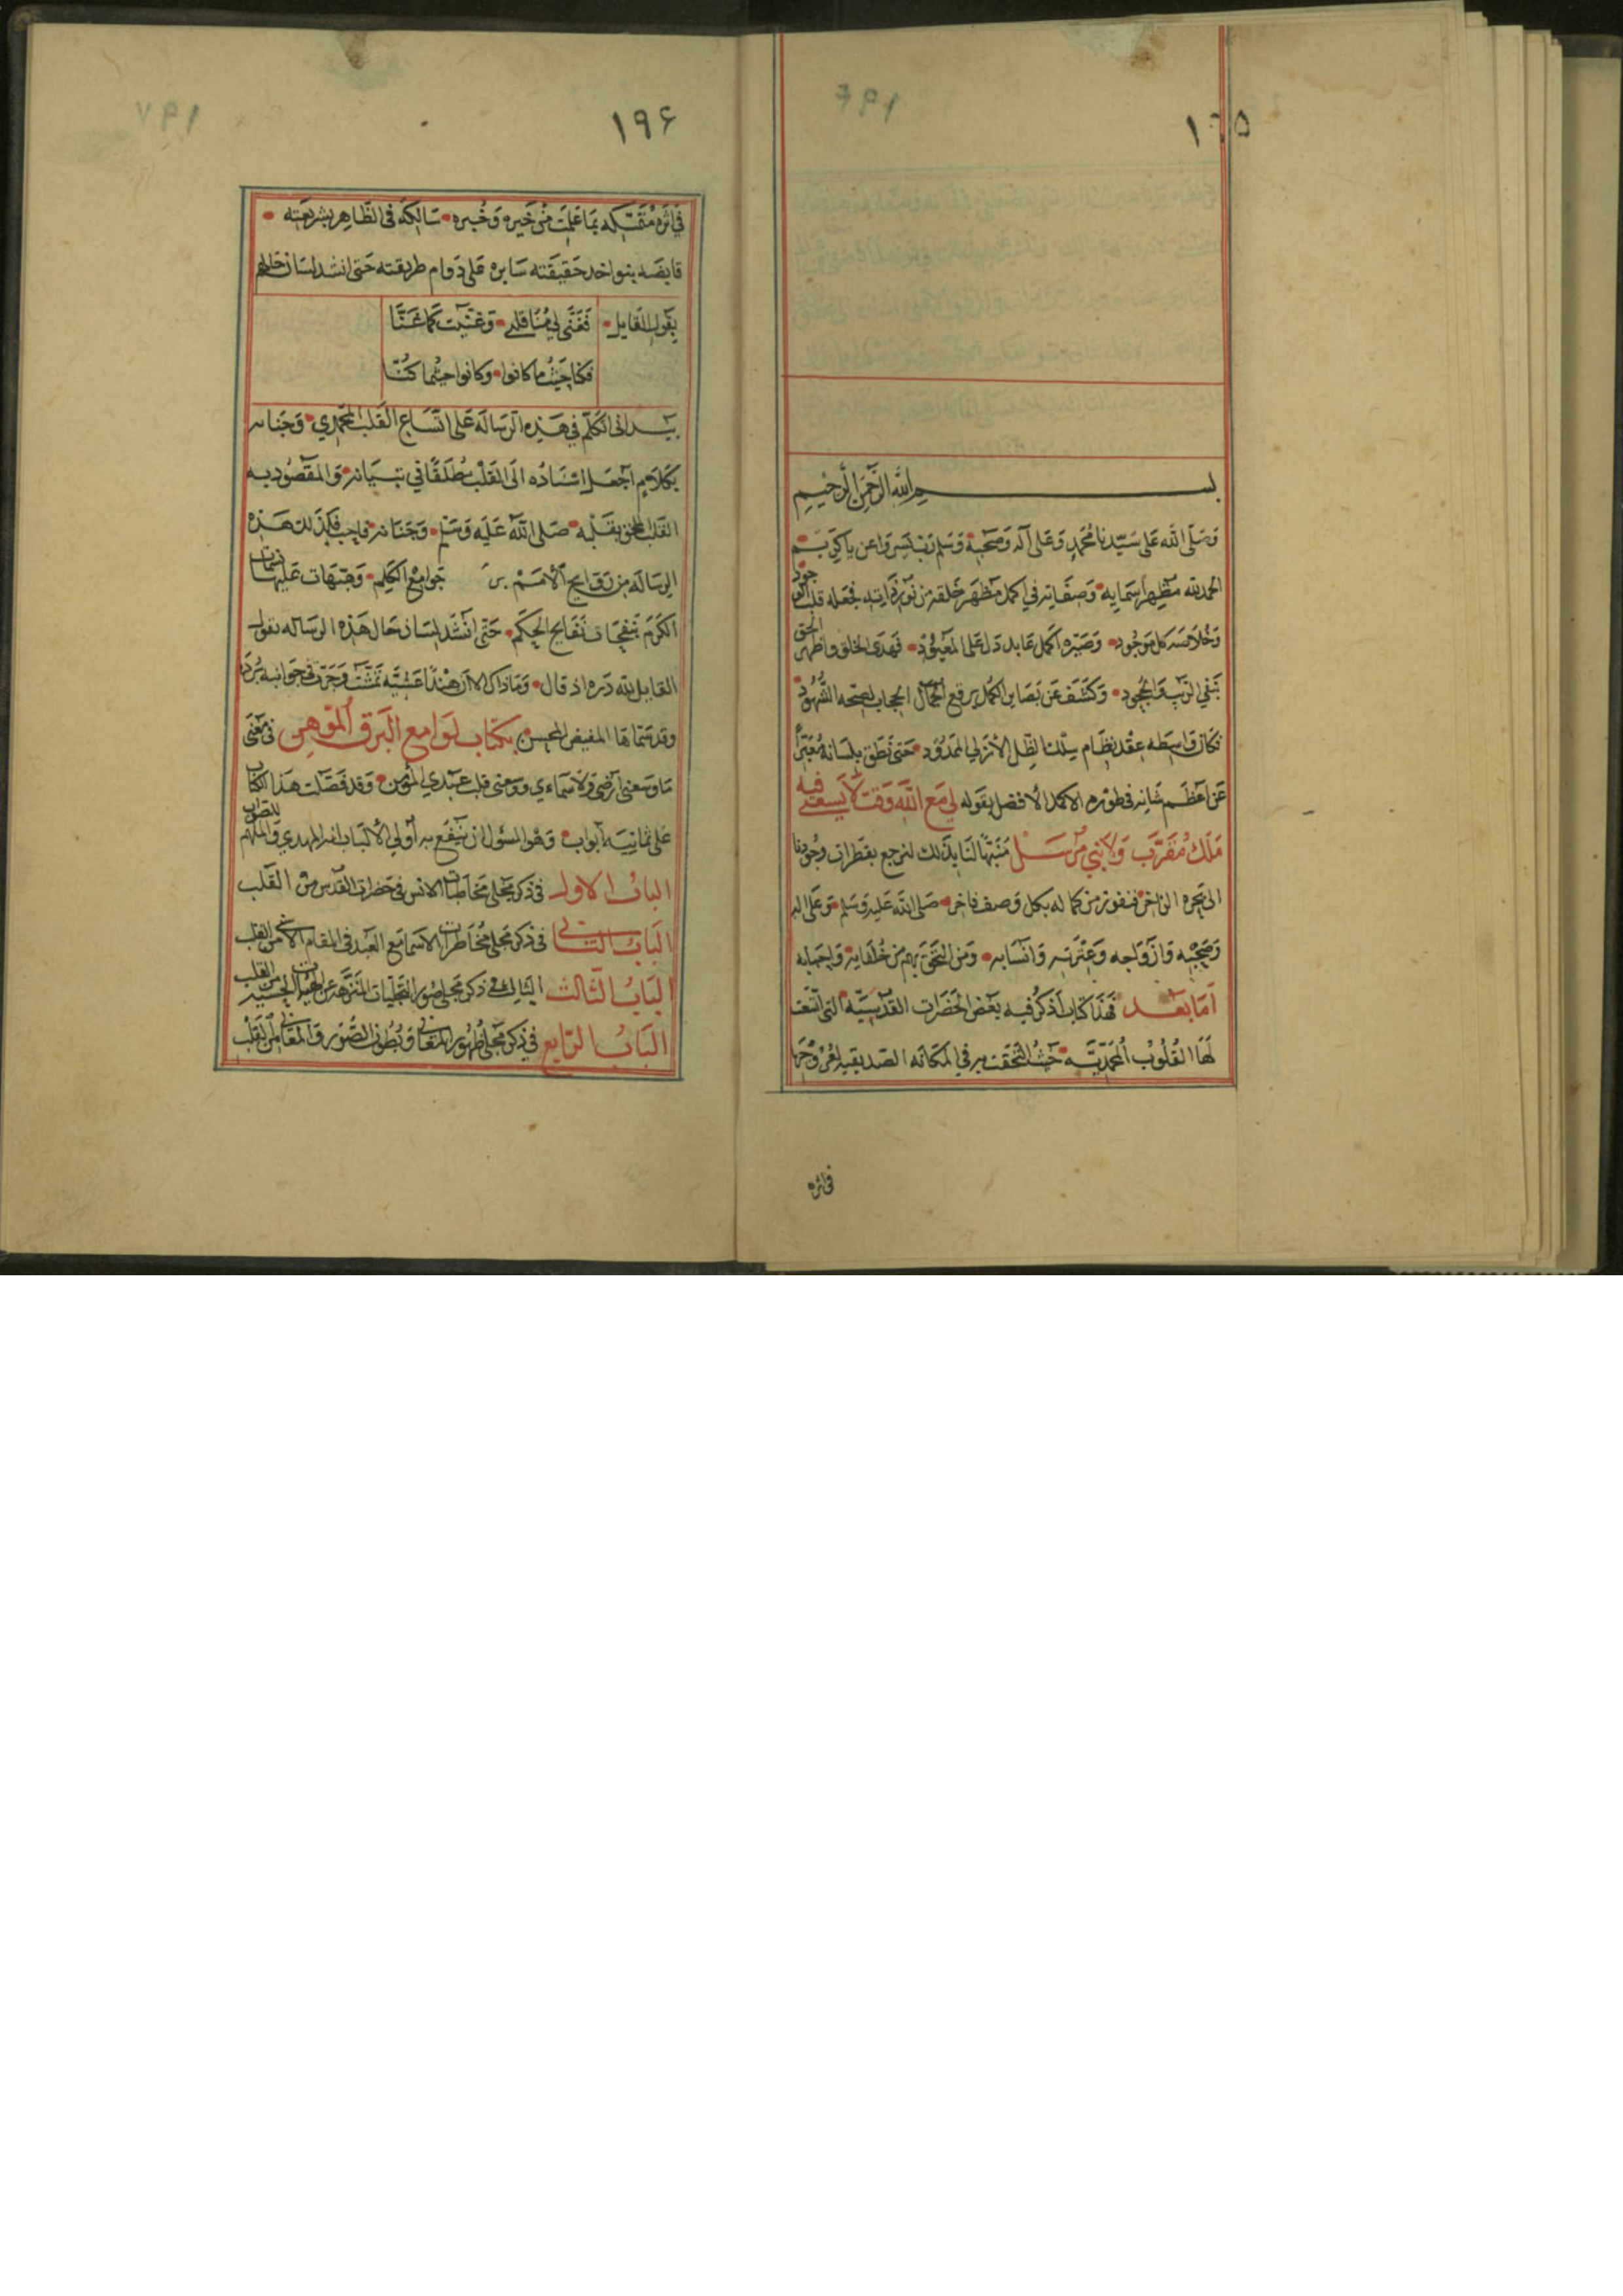 ١٩٥
بسم الله الرحمن الرحيم
وصلى الله على سيدنا محمد وعلى آله وصحبه وسلم رب يسر واعن ياكريم
الحمد لله مظهر اسمايه وصفاته في اكمل مظهر خلقه من نور ذاته فجعله قلب الوجود
وخلاصة كل موجود وصيره اكمل عابد دل على المعبود فهدى الخلق واظهر الحق
بنفي الريب والجحود وكشف عن بصاير الكمل برقع الجمال الحجاب لصحة الشهود
فكان واسطه عقد نظام سلك الظل الازلي الممدود حتى نطق بلسانه معبرا
عن اعظم شانه في طوره الاكمل الافضل بقوله لي مع الله وقت لا يسعني فيه
ملك مقرب ولا نبي مرسل منبها لنا بذلك لنرجع بقطرات وجودنا
الى بحره الزاخر فنفوز من كماله بكل وصف فاخر صلى الله عليه وسلم وعلى اله
وصحبه وازواجه وعترته وانسابه ومن التحق بهم من خلفايه واحبابه
اما بعد فهذا كتاب اذكر فيه بعض الحضرات القدسيه التي اتسعت
لها القلوب المحمديه حيث التحقت به في المكانه الصديقيه
في اثره
١٩٦
في اثره متمسكه بما علمت من خيره وخبره سالكه في الظاهر بشريعته
قابضه بنواجد حقيقته سايره على دوام طريقته حتى انشد لسان حالهم
بقول القايل فغنى لي منا قلبي وغنيت كما غنا
فكنا حيث ما كانوا وكانوا حيثما كنا
بيد اني اتكلم في هذه الرساله على اتساع القلب المحمدي وجنانه
بكلام اجعل اسناده الى القلب مطلقا في تبيانه والمقصود به
القلب الملحق بقلبه صلى الله عليه وسلم وجنانه فاجب فكذلك هذه
الرساله من جوامع الكلم وهبهات عليها نسمات
الكرم بنفحات نفايح الحكم حتى انشد لسان حال هذه الرساله بقول
القايل لله دره اذ قال وماذاك الا ان هندا عشية تمشت وجرت في جوانبه بردا
وقد سماها المفيض المحسن بكتاب لوامع البرق الموهن في معنى
ما وسعني ارضي ولا سماءي ووسعني قلب عبدي المؤمن وقد فصلت هذا الكتاب
على ثمانيه ابواب وهو المسؤل ان ينفع به اولي الالباب انه المهدي والملهم للصواب
الباب الاول في ذكر مجلى مخاطبات الانس في حضرات القدس من القلب
الباب الثاني في ذكر مجلى مخاطرات الاسما مع العبد في المقام الاسنى من القلب
الباب الثالث الثالث في ذكر مجلى صور التجليات المنزهة عن الهيئات الحسيه من القلب
الباب الرابع في ذكر مجلى ظهور المعاني وبطون الصور والمغاني من القلب